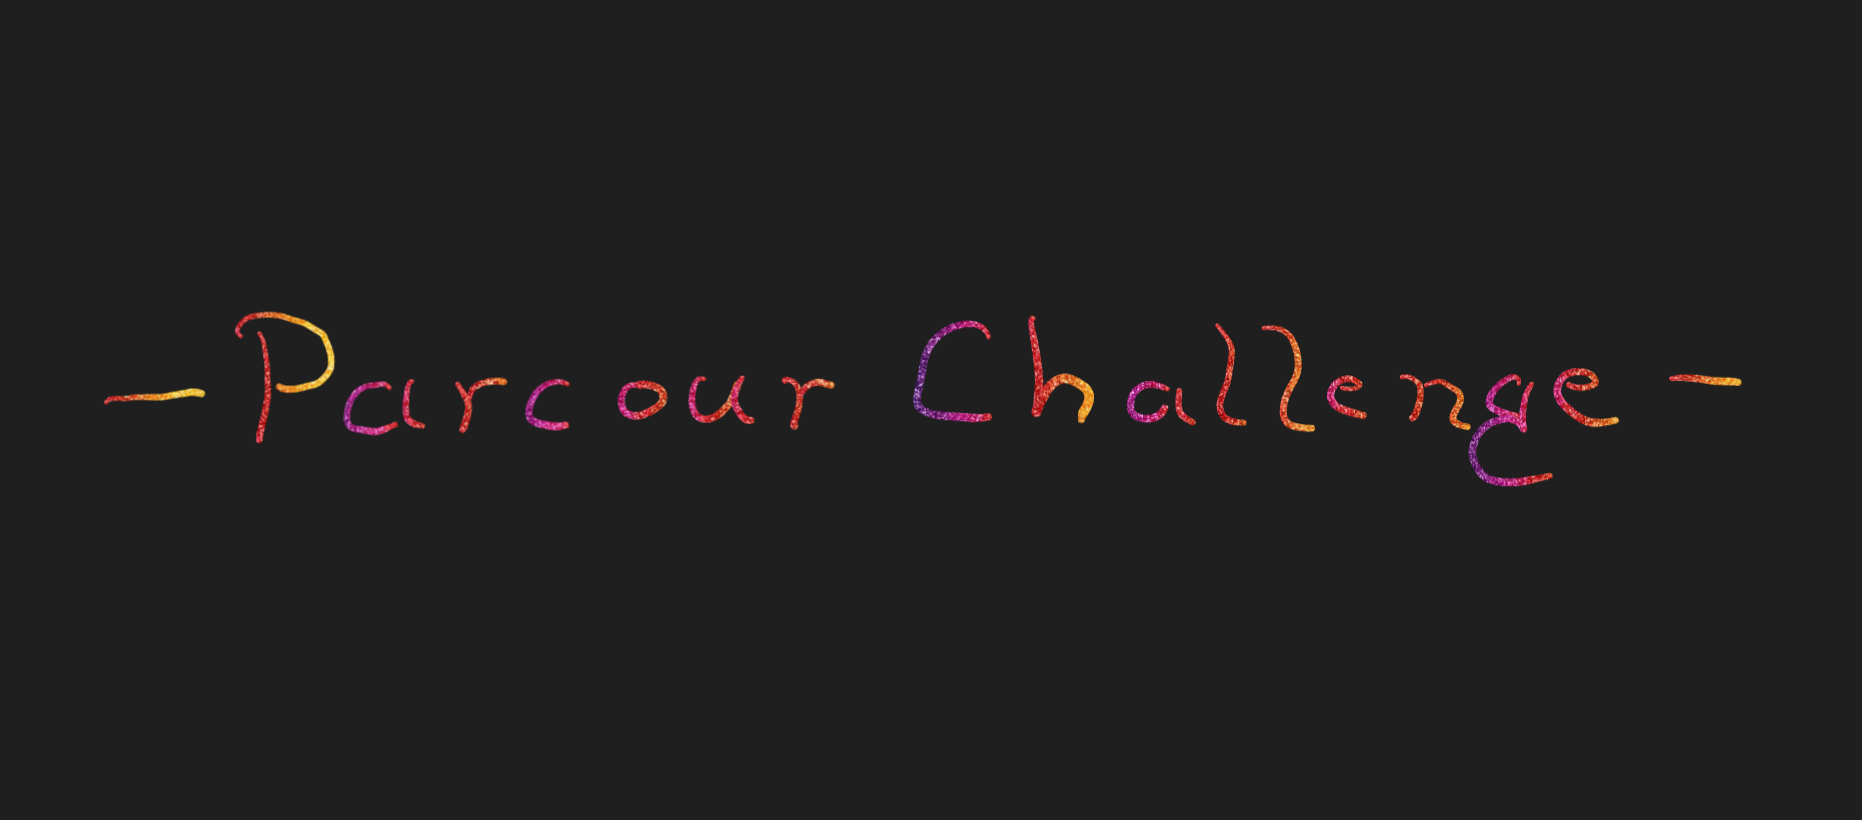 - Parcour Challenge -